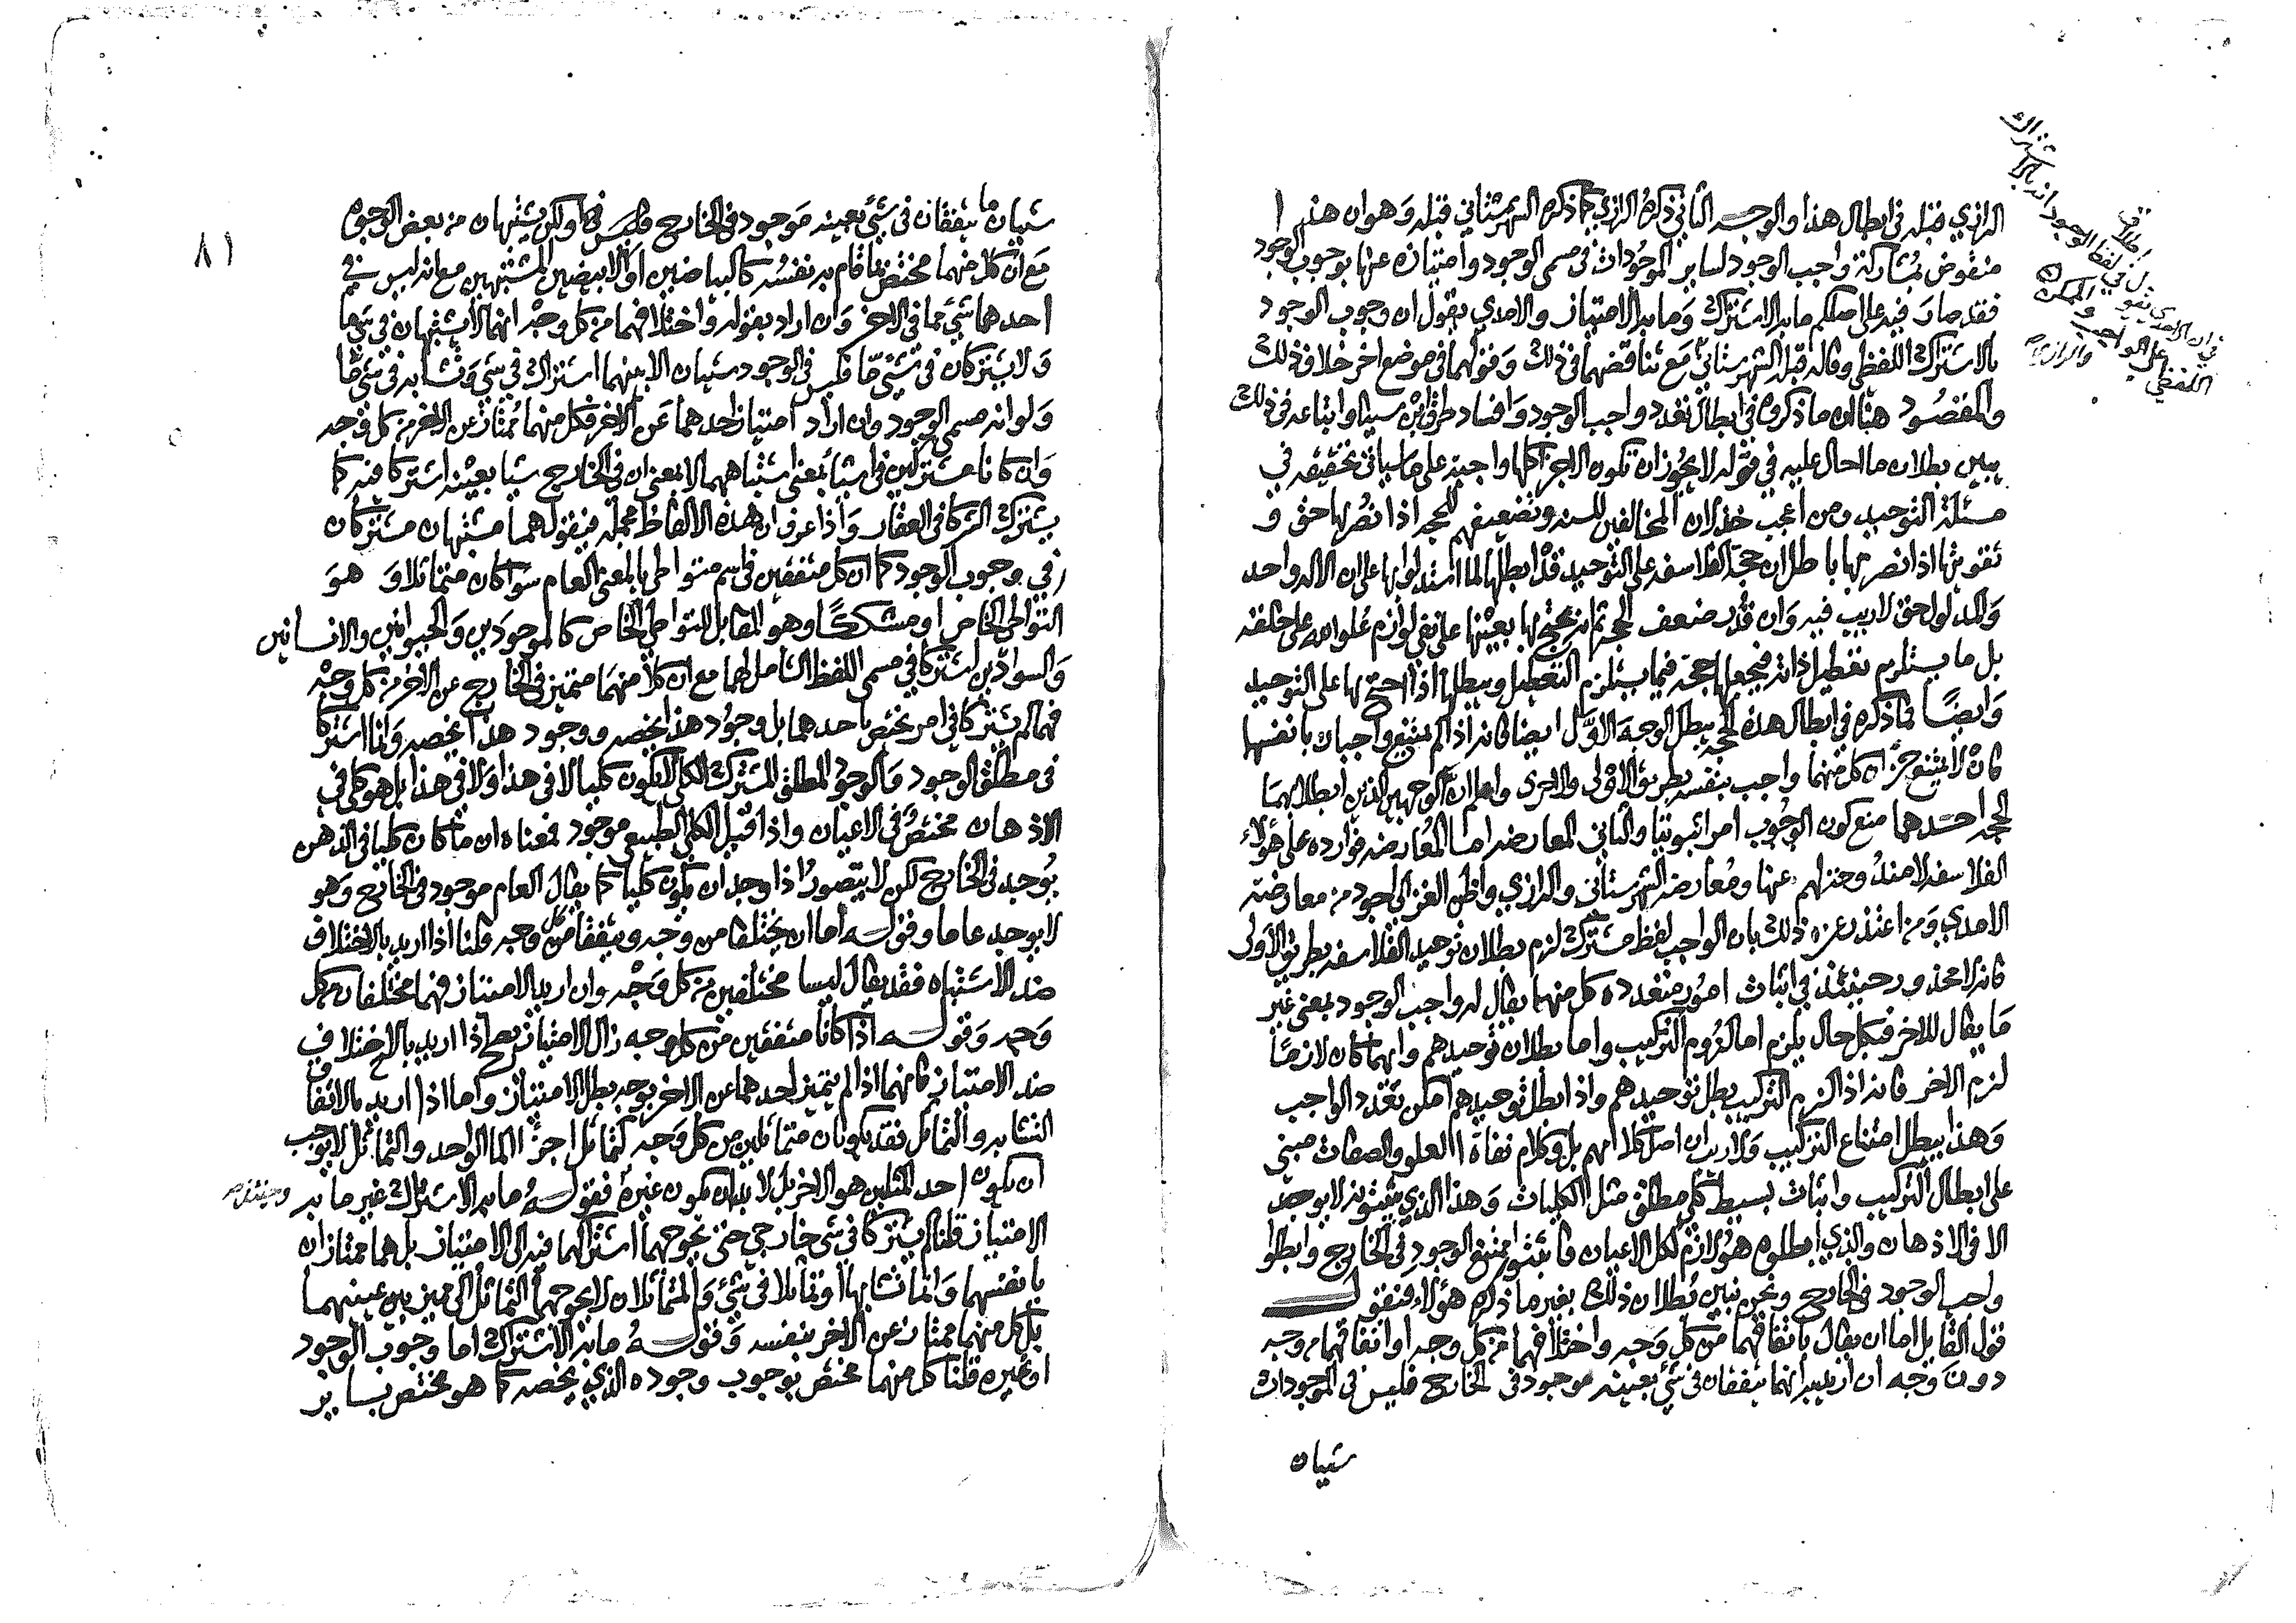 الرازي قبله في ابطال هذا والوجه الثاني ذكره الرازي كما ذكره الشهرستاني قبله وهو ان هذا
منقوض بمشاركة واجب الوجود لساير الموجودات في مسمى الوجود وامتيازه عنها بوجوب الوجود
فقد صار فيه على اصلكم ما به الاشتراك وما به الامتياز والامدي يقول ان وجوب الوجود
بالاشتراك اللفظي وقاله قبله الشهرستاني مع تناقضهما في ذلك وقولهما في موضع اخر خلاف ذلك
والمقصود هنا ان ما ذكروه في ابطال تعدد واجب الوجود وافساد طرق ابن سينا واتباعه في ذلك
يبين بطلان ما احال عليه في قوله لا يجوز ان تكون الاجزا كلها واجبة على ما سياتي تحقيقه في
مسئلة التوحيد ومن اعجب خذلان المخالفين للسنة وتضعيفهم للحجة اذا نصر بها حق و
تقويتها اذا نصر بها باطل ان حجة الفلاسفة على التوحيد قد ابطلها لما استدلوا بها على ان الاله واحد
والمدلول حق لا ريب فيه وان قدر ضعف الحجة ثم انه يحتج بها بعينها على نفي لوازم علو الله على خلقه
بل ما يستلزم تعطيل ذاته فيجعلها حجة فيما يستلزم التعطيل ويبطلها اذا احتج بها على التوحيد
وايضا فما ذكره في ابطال هذه الحجة يبطل الوجه الاول ايضا فانه اذا لم يمتنع واجبان بانفسهما
فان لا يمتنع جزان كل منهما واجب بنفسه بطريق الاولى والاحرى واعلم ان الوجهين الذين ابطلا بهما
الحجة احدهما منع كون الوجوب امرا ثبوتيا والثاني المعارضة اما المعارضة فواردة على هؤلاء
الفلاسفة لا مندوحة لهم عنها ومعارضة الشهرستاني والرازي واظن الغزالي اجود من معارضة
الامدي ومن اعتذر عن ذلك بان الواجب لفظ مشترك لزم بطلان توحيد الفلاسفة بطريق الاولى
فانه لا محذور حينئذ في اثبات امور متعددة كل منهما يقال له واجب الوجود بمعنى غير
ما يقال للاخر فبكل حال يلزم اما لزوم التركيب واما بطلان توحيدهم وايهما كان لازما
لزم الاخر فانه اذا لزم التركيب بطل توحيدهم واذا بطل توحيدهم امكن تعدد الواجب
وهذا يبطل امتناع التركيب ولا ريب ان اصل كلامهم بل وكلام نفاة العلو والصفات مبني
على ابطال التركيب واثبات بسيط كلي مطلق مثل الكليات وهذا الذي يثبتونه لا يوجد
الا في الاذهان والذي ابطلوه هو لازم لكل الاعيان فاثبتوا ممتنع الوجود في الخارج وابطلوا
واجب الوجود في الخارج ونحن نبين بطلان ذلك بغير ما ذكره هؤلاء فنقول
قول القايل اما ان يقال باتفاقهما من كل وجه واختلافهما من كل وجه او اتفاقهما من وجه
دون وجه ان اريد انهما يتفقان في شي بعينه موجود في الخارج فليس في الموجودات
شيان
شيان ما يتفقان في شي بعينه موجود في الخارج فليس في ولكن يشتبهان من بعض الوجوه
مع ان كل منهما مختص بما قام به نفسه كالبياضين او الابيضين المشتبهين مع انه ليس في
احدهما شي مما في الاخر وان اراد بقوله واختلافهما من كل وجه انهما لا يشتبهان في شي ما
ولا يشتركان في شي ما فليس في الوجود شيان الا بينهما اشتراك في شي وتشابه في شي ما
ولو انه مسمى الوجود وان اراد امتياز احدهما عن الاخر فكل منهما ممتاز عن الاخر من كل وجه
وان كانا مشتركين في اشيا بمعنى اشتباههما لا بمعنى ان في الخارج شيا بعينه اشتركا فيه كما
يشترك الشركا في العقار واذا عرف ان هذه الالفاظ مجملة فيقول هما مشتبهان مشتركان
في وجوب الوجود كما ان كل متفقين في اسم متواطي بالمعنى العام سوا كان متماثلا وهو
التواطي الخاص او مشككا وهو المقابل للتواطي الخاص كالموجودين والحيوانين والانسانين
والسوادين اشتركا في مسمى اللفظ الشامل لهما مع ان كلا منهما متميز في الخارج عن الاخر من كل وجه
فهما لم يشتركا في امر يختص باحدهما بل وجود هذا يخصه ووجود هذا يخصه وانما اشتركا
في مطلق الوجود والوجود المطلق المشترك الكلي لا يكون كليا لا في هذا ولا في هذا بل هو كلي في
الاذهان مختص في الاعيان واذا قيل الكلي الطبيعي موجود فمعناه ان ما كان كليا في الذهن
يوجد في الخارج لكن لا يتصور اذا وجد ان يكون كليا كما يقال العام موجود في الخارج وهو
لا يوجد عاما وقوله اما ان يختلفا من وجه ويتفقا من كل وجه قلنا اذا اريد بالاختلاف
ضد الاشتباه فقد يقال ليسا مختلفين من كل وجه وان اريد الامتياز فهما مختلفان من كل
وجه وقوله اذا كانا متفقين من كل وجه زال الامتياز يصح اذا اريد بالاختلاف
ضد الامتياز فانهما اذا لم يتميز احدهما عن الاخر بوجه بطل الامتياز واما اذا اريد بالاتفاق
التشابه والتماثل فقد يكونان متماثلين من كل وجه كتماثل اجزا الما الواحد والتماثل لا يوجب
ان يكون احد المثلين هو الاخر بل لا بد ان يكون غيره فقوله ما به الاشتراك غير ما به
وحينئذ
الامتياز قلنا لم يشتركا في شي خارجي حتى يحوجهما اشتراكهما فيه الى الامتياز بل هما ممتازان
بانفسهما وانما تشابها او تماثلا في شي والمتماثلان لا يحوجهما التماثل الى مميز بين عينيهما
بل كل منهما ممتاز عن الاخر بنفسه وقوله ما به الاشتراك اما وجوب الوجود
او غيره قلنا كل منهما مختص بوجوب وجوده الذي يخصه كما هو مختص بساير
٨١